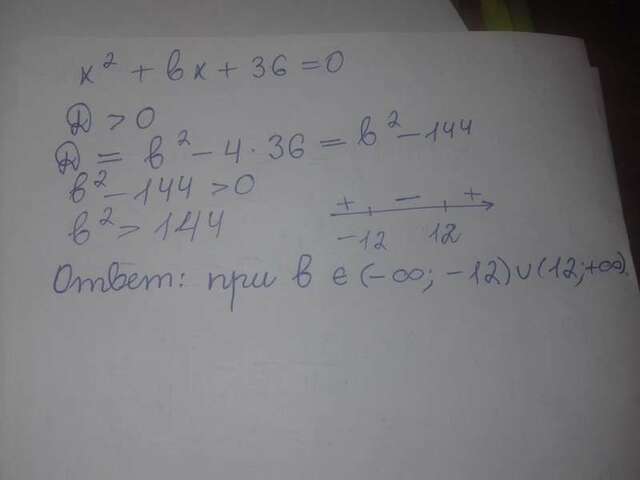 x² + bx + 36 = 0
D > 0
D = b² - 4 · 36 = b² - 144
b² - 144 > 0
b² > 144
+ - +
-12 12
Ответ: при b ∈ (-∞; -12) ∪ (12; +∞).